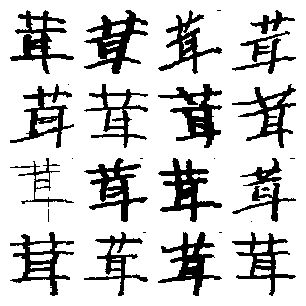 茸茸茸茸
茸茸茸茸
茸茸茸茸
茸茸茸茸